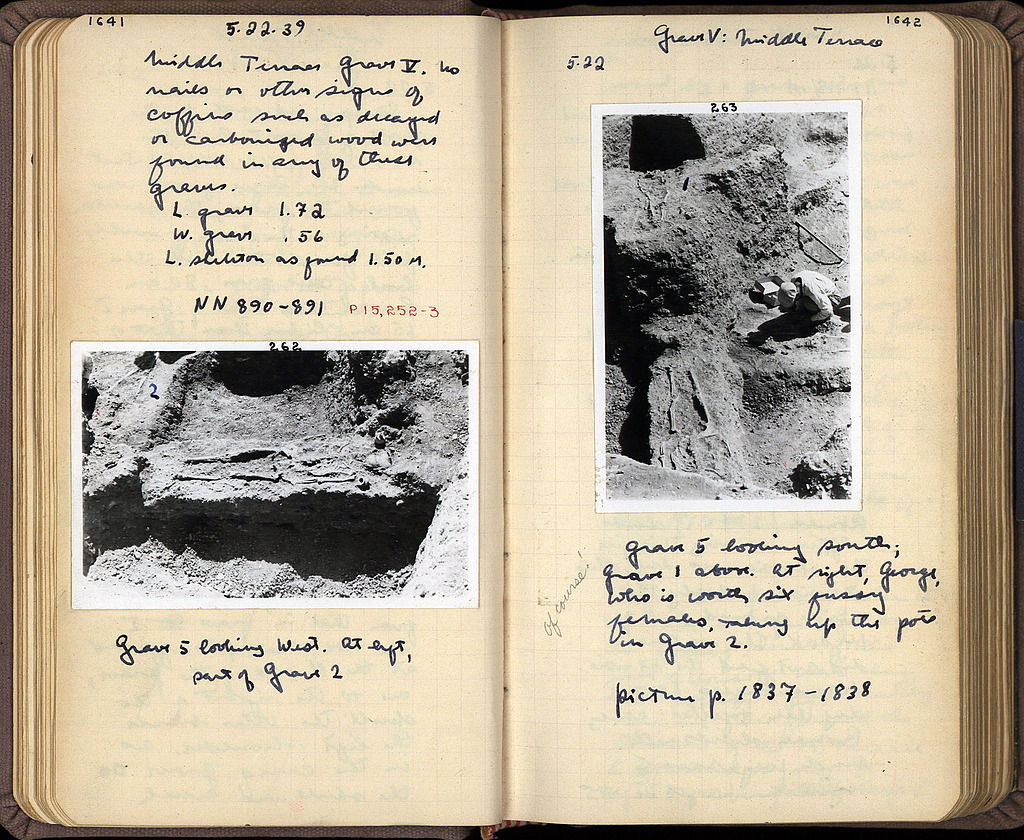 1641
5.22.39
Middle Terrace Grave V. No
nails or other signs of
coffins such as decayed
or carbonized wood were
found in any of these
graves.
L. grave 1.72
W. grave .56
L. skeleton as found 1.50 M.
NN 890-891 P 15,252-3
262
2
Grave 5 looking West. At left,
part of Grave 2
1642
Grave V: Middle Terrace
5.22
263
1
Grave 5 looking south;
Grave 1 above. At right, George,
who is worth six fussy
females, taking up the pots
in Grave 2.
of course!
picture p. 1837-1838